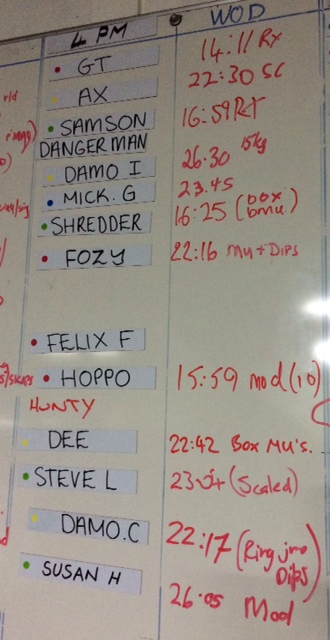 4 PM WOD
GT 14:11 RX
AX 22:30 SC
SAMSON 16:59 RX
DANGERMAN
DAMO I 26.30 15kg
MICK. G 23.45
SHREDDER 16:25 (box bmu)
FOZY 22:16 MU + DIPS
FELIX F
HOPPO 15:59 mod (10)
HUNTY
DEE 22:42 Box MU's.
STEVE L (Scaled)
DAMO.C 22:17 (Ring
Dips)
SUSAN H 26.05 Mod